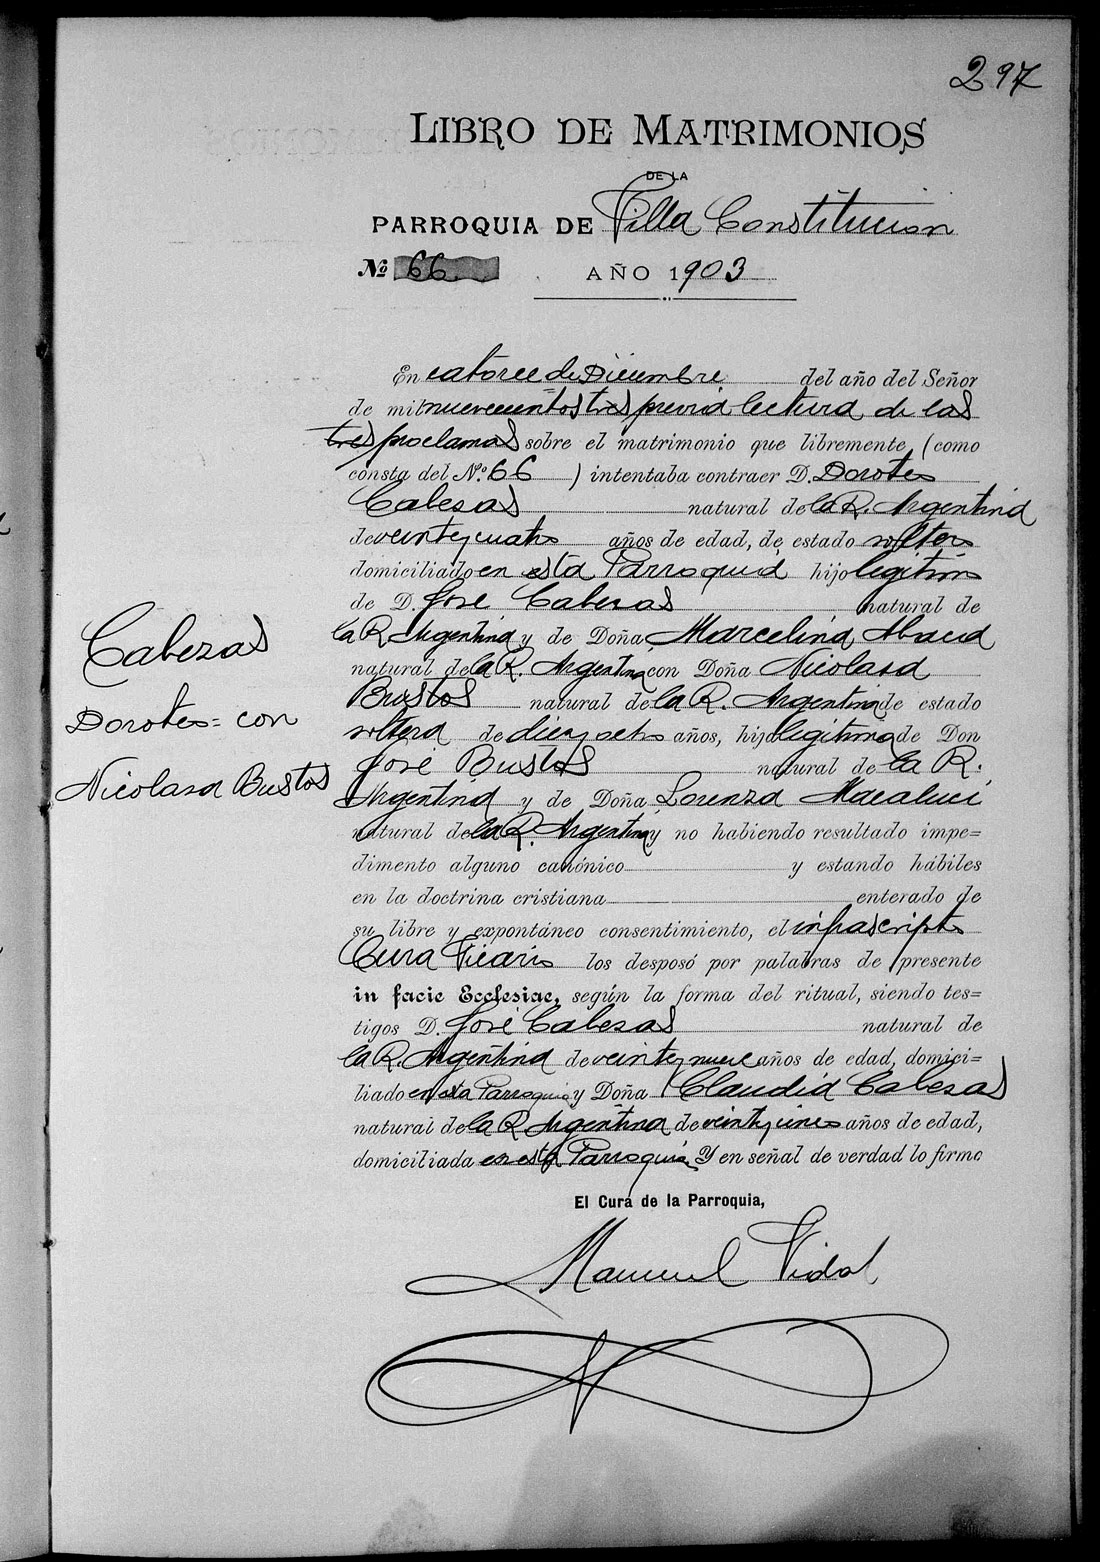 297
LIBRO DE MATRIMONIOS
DE LA
PARROQUIA DE Villa Constitucion
Nº 66 AÑO 1903
En catorce de Diciembre del año del Señor
de mil nuevecientos tres previa lectura de las
tres proclamas sobre el matrimonio que libremente (como
consta del Nº 66 ) intentaba contraer D. Doroteo
Cabezas natural de la R. Argentina
de veinte y cuatro años de edad, de estado soltero
domiciliado en esta Parroquia hijo legitimo
de D. José Cabezas natural de
la R. Argentina y de Doña Marcelina Abaca
natural de la R. Argentina con Doña Nicolasa
Bustos natural de la R. Argentina de estado
soltera de diez y ocho años, hija legitima de Don
José Bustos natural de la R.
Argentina y de Doña Lorenza Macaluci
natural de la R. Argentina y no habiendo resultado impe=
dimento alguno canónico y estando hábiles
en la doctrina cristiana enterado de
su libre y expontáneo consentimiento, el infrascripto
Cura Vicario los desposó por palabras de presente
in facie Ecclesiae, según la forma del ritual, siendo tes=
tigos D. José Cabezas natural de
la R. Argentina de veinte y nueve años de edad, domici=
liado en esta Parroquia y Doña Claudia Cabezas
natural de la R Argentina de veinte y cinco años de edad,
domiciliada en esta Parroquia Y en señal de verdad lo firmo
El Cura de la Parroquia,
Manuel Vidal
Cabezas
Doroteo = con
Nicolasa Bustos